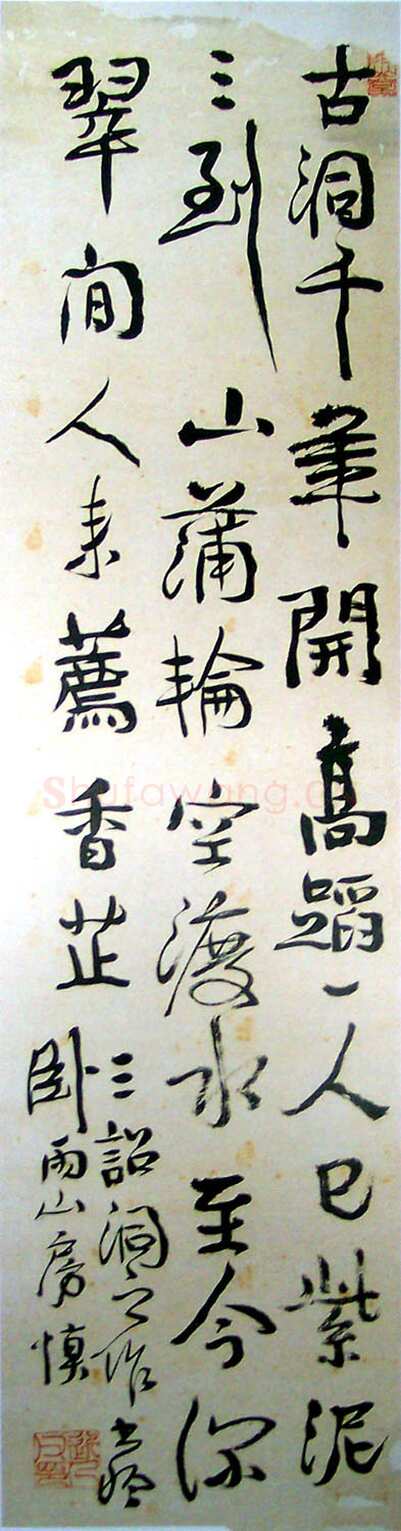 古洞千年開高蹈一人已紫泥
三到山蒲輪空渡水至今深
翠間人来薦香芷
三詔洞之作
卧雨山房慎
Shufawang.c